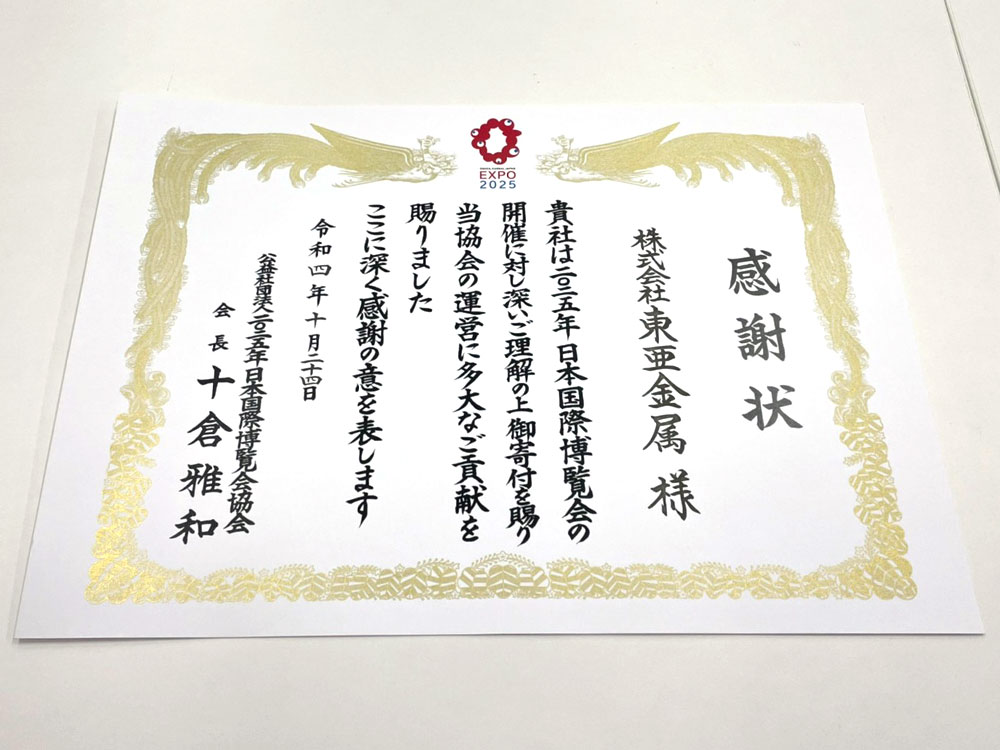 感謝状
株式会社東亜金属 様
貴社は二〇二五年日本国際博覧会の
開催に対し深いご理解の上御寄付を賜り
当協会の運営に多大なご貢献を
賜りました
ここに深く感謝の意を表します
令和四年十月二十四日
公益社団法人二〇二五年日本国際博覧会協会
会長 十倉雅和
EXPO
2025